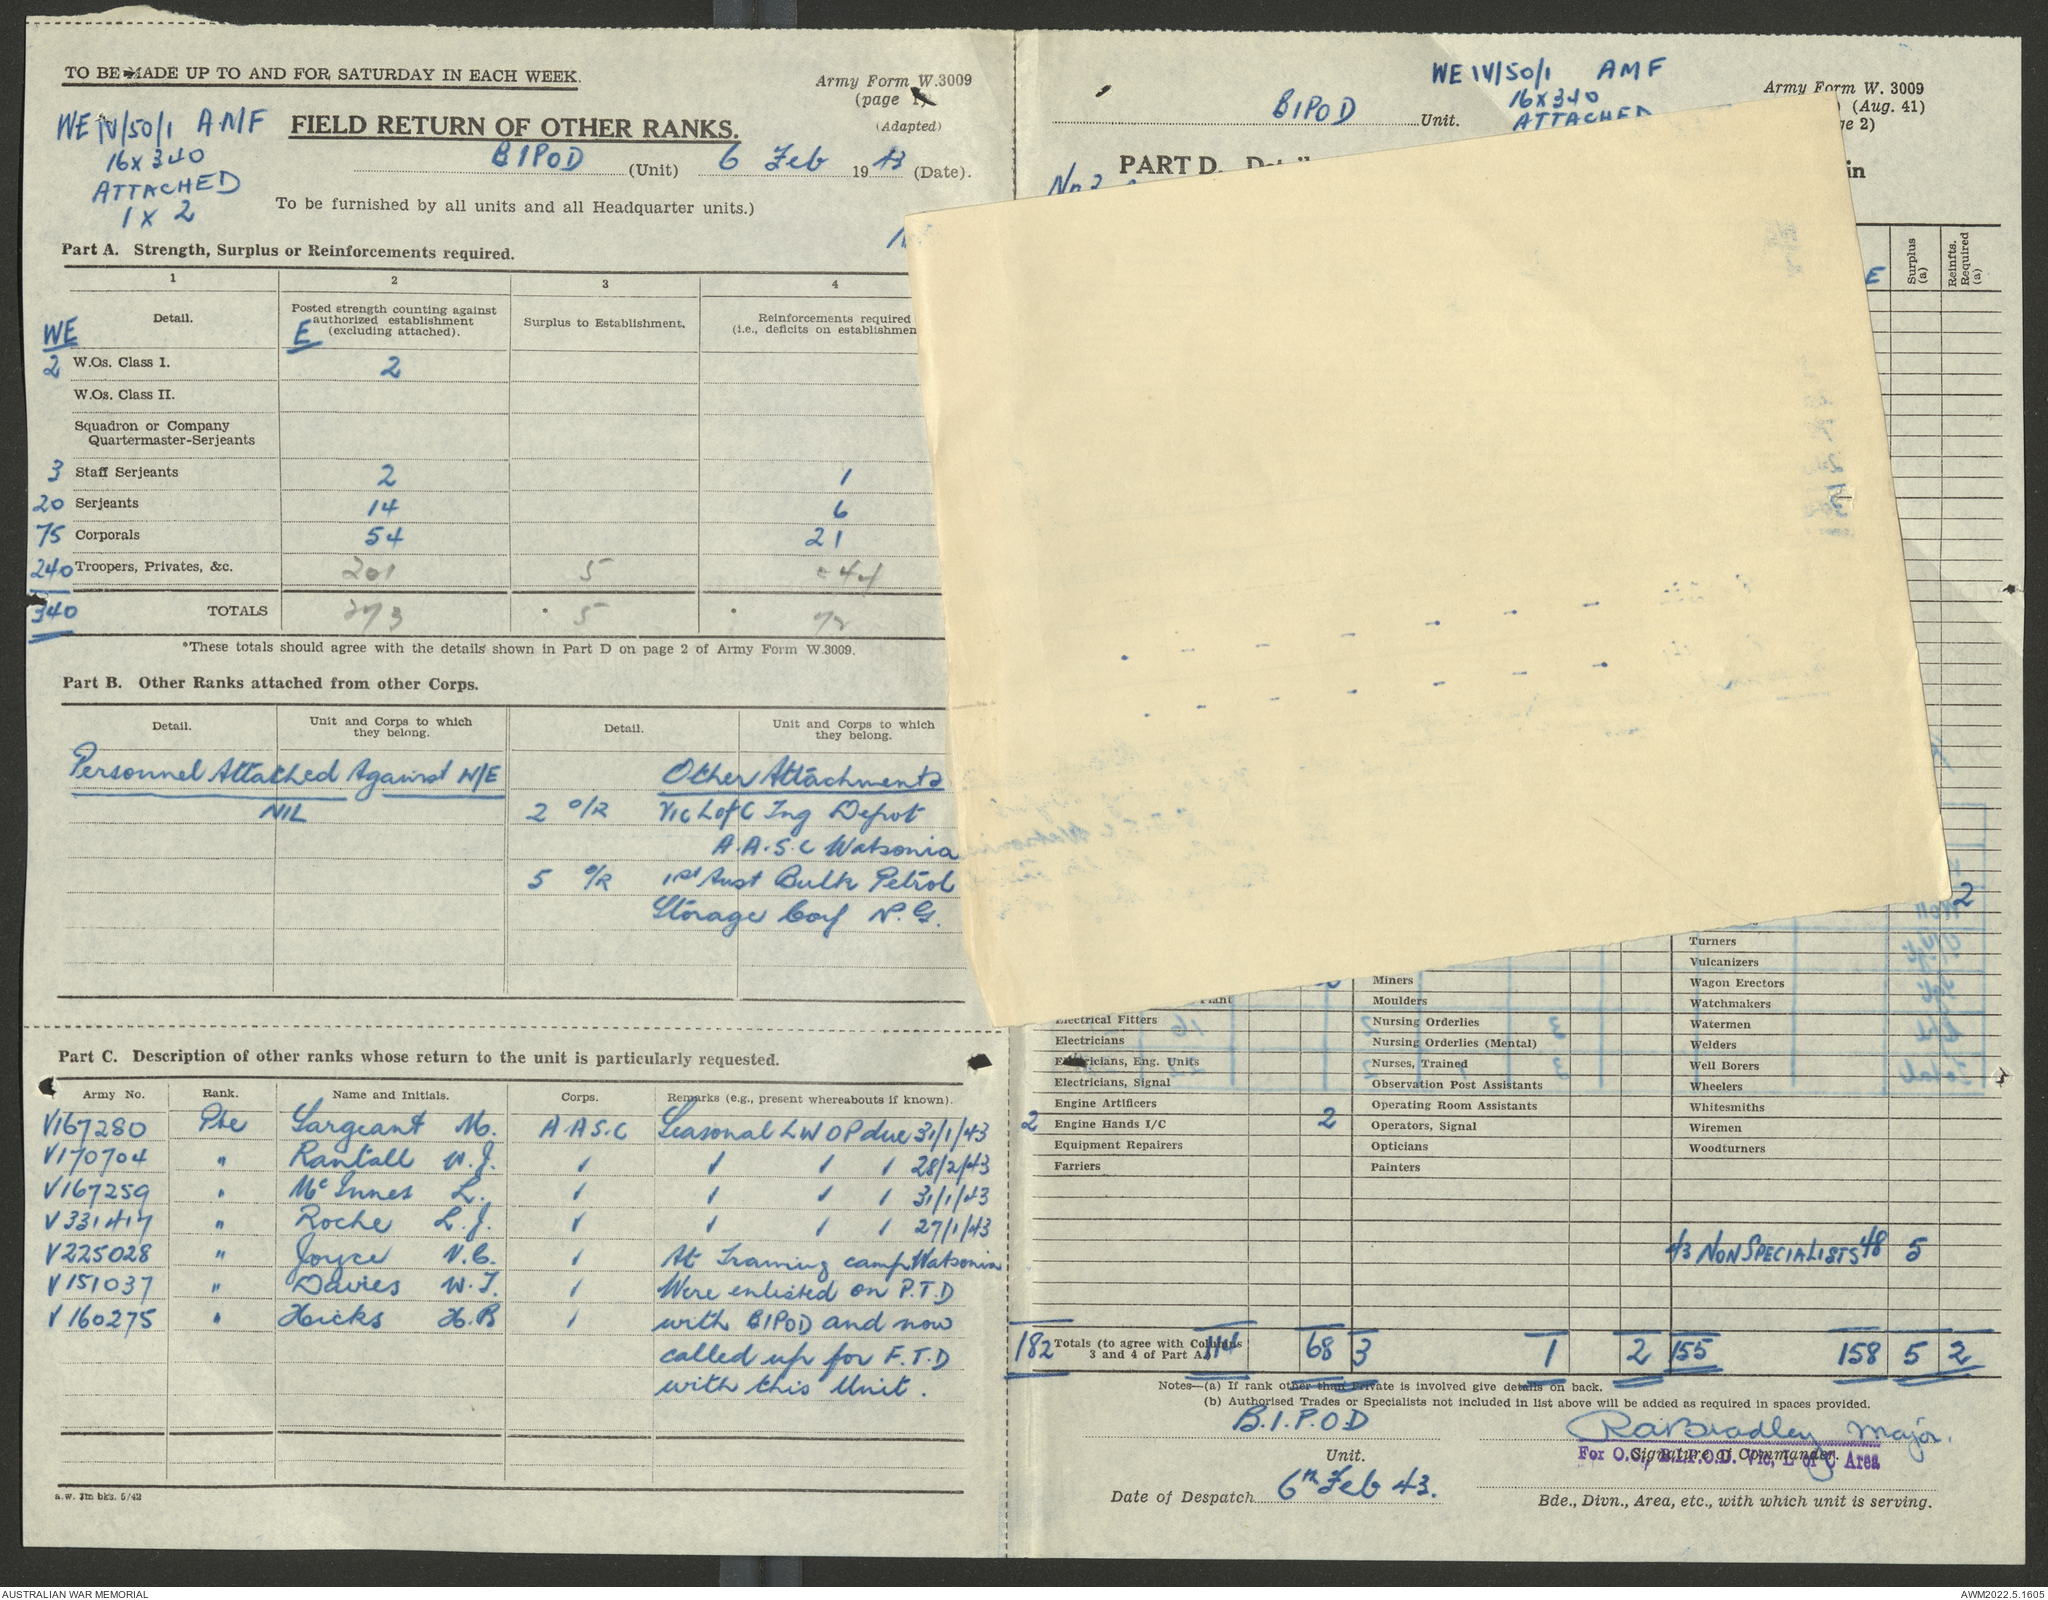 TO BE MADE UP TO AND FOR SATURDAY IN EACH WEEK.
Army Form W.3009
(page 1)
(Adapted)
WE IV/50/1 AMF
16 x 340
ATTACHED
1 x 2
FIELD RETURN OF OTHER RANKS.
BIPOD (Unit) 6 Feb 1943 (Date).
To be furnished by all units and all Headquarter units.)
Part A. Strength, Surplus or Reinforcements required.
1 2 3 4
Detail. Posted strength counting against authorized establishment (excluding attached). Surplus to Establishment. Reinforcements required (i.e., deficits on establishmen
WE E
2 W.Os. Class I. 2
W.Os. Class II.
Squadron or Company
Quartermaster-Serjeants
3 Staff Serjeants 2 1
20 Serjeants 14 6
75 Corporals 54 21
240 Troopers, Privates, &c. 201 5 44
340 TOTALS 273 5 72
*These totals should agree with the details shown in Part D on page 2 of Army Form W.3009.
Part B. Other Ranks attached from other Corps.
Detail. Unit and Corps to which they belong. Detail. Unit and Corps to which they belong.
Personnel Attached Against W/E Other Attachments
NIL 2 O/R Vic L of C Tng Depot
A.A.S.C Watsonia
5 O/R 1st Aust Bulk Petrol
Storage Coy N.G.
Part C. Description of other ranks whose return to the unit is particularly requested.
Army No. Rank. Name and Initials. Corps. Remarks (e.g., present whereabouts if known).
V167280 Pte Sargeant M. A.A.S.C Seasonal LWOP due 31/1/43
V170704 " Rantall W.J. 28/2/43
V167259 " McInnes L. 31/1/43
V331417 " Roche L.J. 27/1/43
V225028 " Joyce V.C. At Training camp Watsonia
V151037 " Davies W.T. Were enlisted on P.T.D
V160275 " Hicks H.B with BIPOD and now
called up for F.T.D
with this Unit.
a.w. 3m bks. 5/42
WE IV/50/1 AMF
16 x 340
ATTACHED
BIPOD Unit.
Army Form W. 3009
(Aug. 41)
ge 2)
PART D.
in
E Surplus (a) Reinfts. Required (a)
2
Turners
Vulcanizers
Wagon Erectors
Watchmakers
Watermen
Welders
Well Borers
Wheelers
Whitesmiths
Wiremen
Woodturners
Miners
Moulders
Nursing Orderlies
Nursing Orderlies (Mental)
Nurses, Trained
Observation Post Assistants
Operating Room Assistants
Operators, Signal
Opticians
Painters
Plant
Electrical Fitters
Electricians
Electricians, Eng. Units
Electricians, Signal
Engine Artificers
2 Engine Hands I/C 2
Equipment Repairers
Farriers
43 NON SPECIALISTS 48 5
182 Totals (to agree with Columns 3 and 4 of Part A.) 114 68 3 1 2 155 158 5 2
Notes—(a) If rank other than Private is involved give details on back.
(b) Authorised Trades or Specialists not included in list above will be added as required in spaces provided.
B.I.P.O.D
Unit.
RABradley Major.
Signature of Commander.
For O.C., B.I.P.O.D. Vic, L of C Area
Date of Despatch 6th Feb 43.
Bde., Divn., Area, etc., with which unit is serving.
AUSTRALIAN WAR MEMORIAL
AWM2022.5.1605